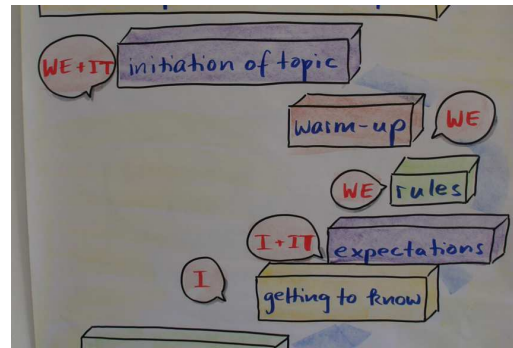 WE+IT initiation of topic
warm-up WE
WE rules
I+IT expectations
I getting to know